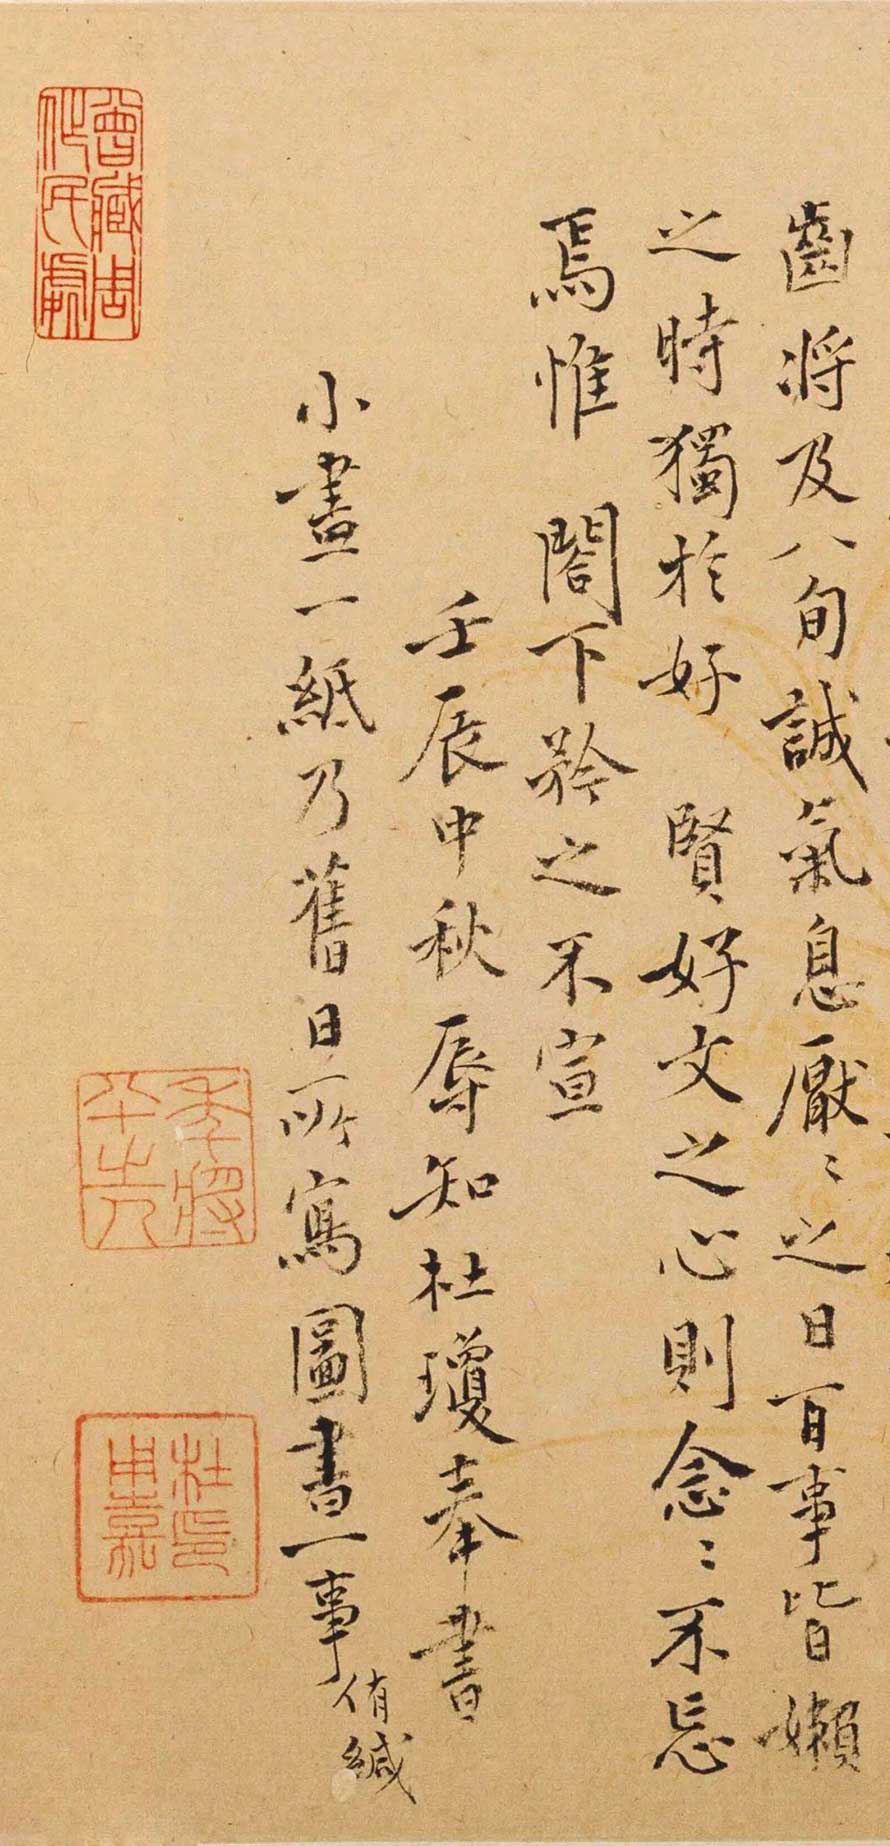 齒將及八旬誠氣息厭〻之日百事皆嬾
之時獨於好 賢好文之心則念〻不忘
焉惟 閣下矜之不宣
壬辰中秋辱知杜瓊奉書
小畫一紙乃舊日所寫圖書一事侑緘
曾藏周
作民處
杜
用嘉